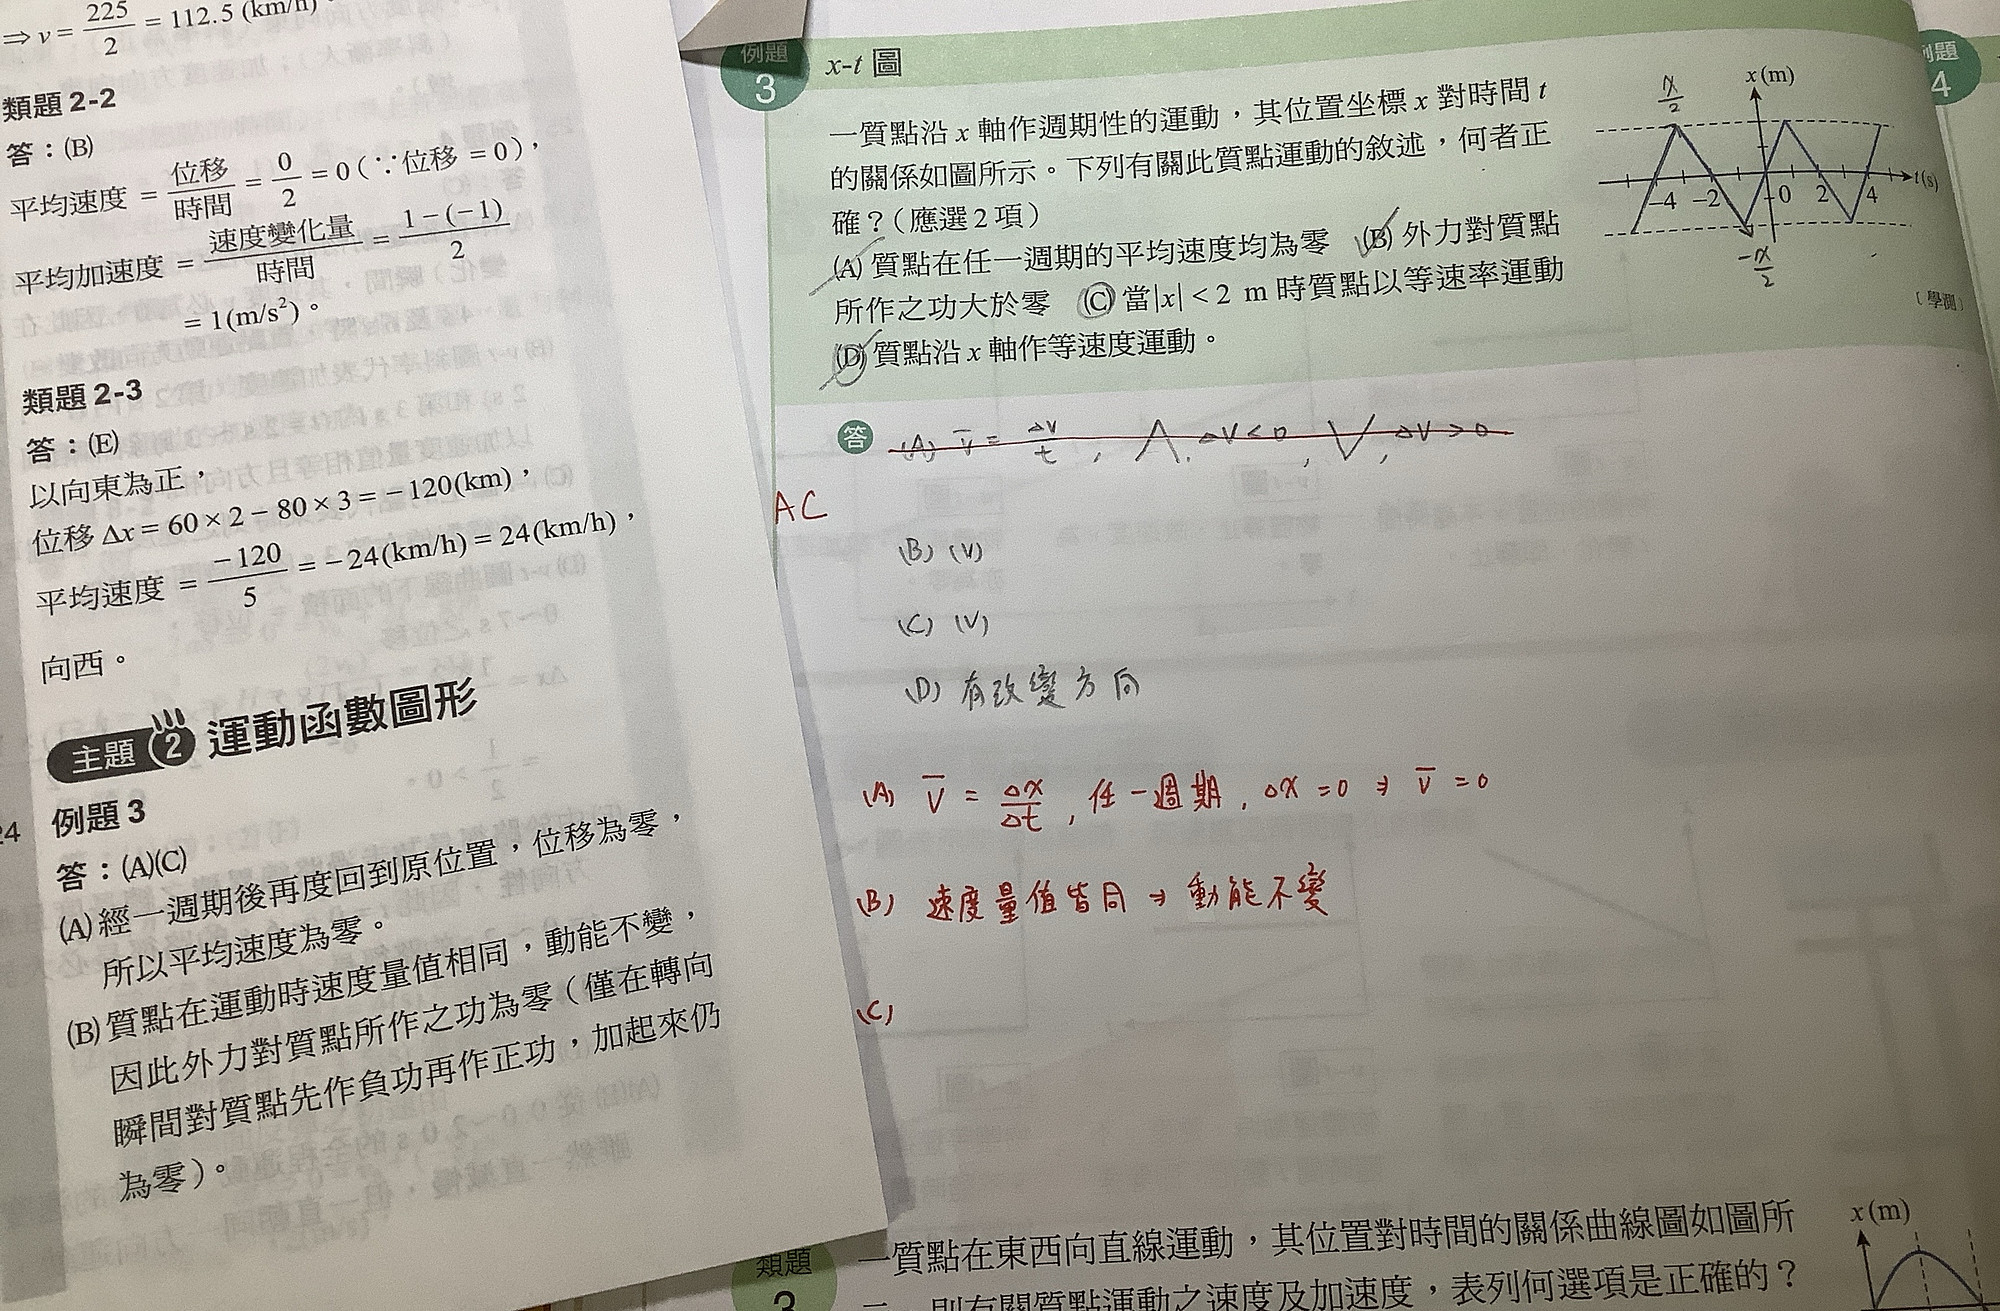 ⇒ v = 225/2 = 112.5 (km/h)
類題 2-2
答：(B)
平均速度 = 位移/時間 = 0/2 = 0 (∵位移 = 0)，
平均加速度 = 速度變化量/時間 = 1 − (−1)/2
= 1(m/s²)。
類題 2-3
答：(E)
以向東為正，
位移 Δx = 60 × 2 − 80 × 3 = −120(km)，
平均速度 = −120/5 = −24(km/h) = 24(km/h)，
向西。
主題 2 運動函數圖形
例題 3
答：(A)(C)
(A) 經一週期後再度回到原位置，位移為零，
所以平均速度為零。
(B) 質點在運動時速度量值相同，動能不變，
因此外力對質點所作之功為零（僅在轉向
瞬間對質點先作負功再作正功，加起來仍
為零）。
例題 3 x-t 圖
一質點沿 x 軸作週期性的運動，其位置坐標 x 對時間 t
的關係如圖所示。下列有關此質點運動的敘述，何者正
確？（應選 2 項）
(A) 質點在任一週期的平均速度均為零 (B) 外力對質點
所作之功大於零 (C) 當|x| < 2 m 時質點以等速率運動
(D) 質點沿 x 軸作等速度運動。
x/2
x(m)
t(s)
−4 −2 0 2 4
−x/2
〔學測〕
例題 4
答 (A) v̄ = ΔV/t , ΔV < 0 , ΔV > 0
AC
(B) (V)
(C) (V)
(D) 有改變方向
(A) V̄ = Δx/Δt , 任一週期 , Δx = 0 ⇒ V̄ = 0
(B) 速度量值皆同 → 動能不變
(C)
類題 3
一質點在東西向直線運動，其位置對時間的關係曲線圖如圖所
則有關質點運動之速度及加速度，表列何選項是正確的？
x(m)